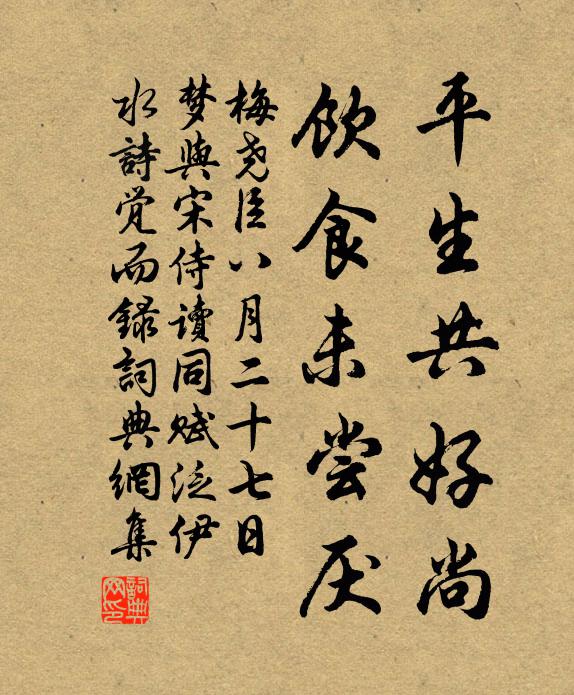 平生共好尚
飲食未尝厌
梅尧臣八月二十七日
梦與宋侍讀同赋泛伊
水詩覺而録詞典網集
詞典网印